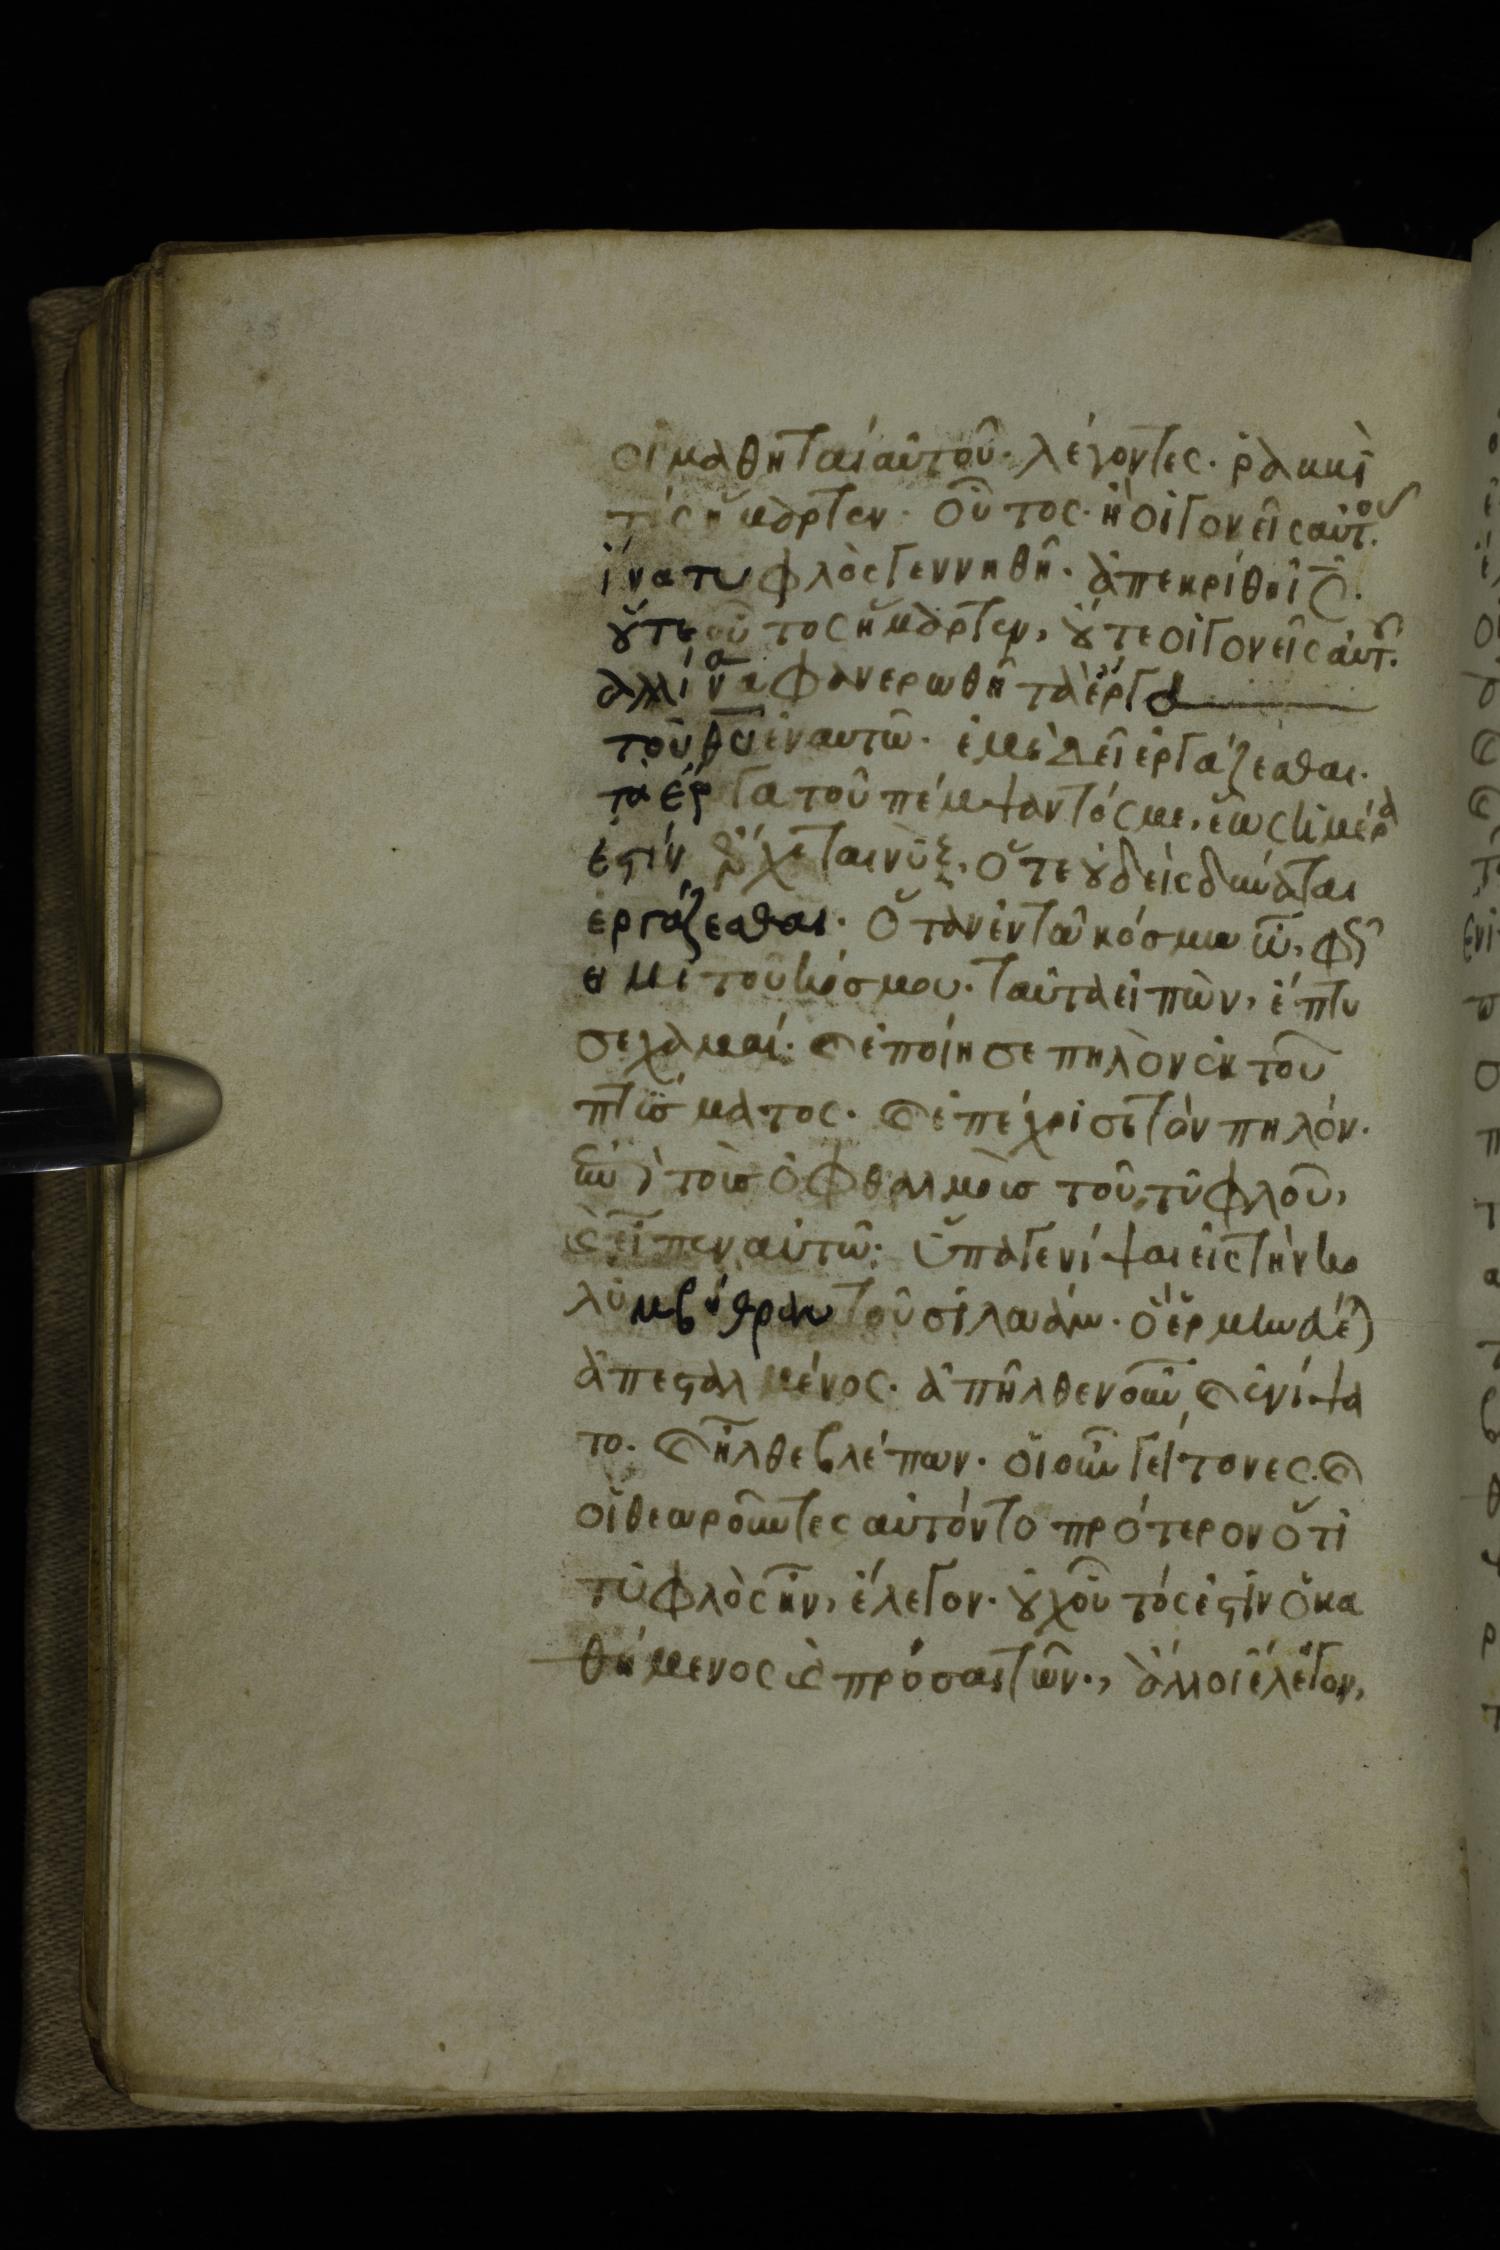 οἱ μαθηταὶ αὐτοῦ· λέγοντες· ῥαββὶ
τίς ἥμαρτεν· οὗτος· ἢ οἱ γονεῖς αὐτοῦ·
ἵνα τυφλὸς γεννηθῆ· ἀπεκρίθη ὁ ις·
οὔτε οὗτος ἥμαρτεν, οὔτε οἱ γονεῖς αὐτοῦ·
ἀλλ' ἵνα φανερωθῆ τὰ ἔργα
τοῦ θυ ἐν αὐτῶ· ἐμὲ δεῖ ἐργάζεσθαι·
τὰ ἔργα τοῦ πέμψαντός με, ἕως ἡμέρα
ἐστίν ἔρχεται νὺξ, ὅτε οὐδεὶς δύναται
ἐργάζεσθαι· ὅταν ἐν τῶ κόσμω ὦ, φῶς
εἰμι τοῦ κόσμου· ταῦτα εἰπὼν, ἔπτυ
σε χαμαί· καὶ ἐποίησε πηλὸν ἐκ τοῦ
πτύσματος· καὶ ἐπέχρισε τὸν πηλόν·
ἐπὶ τοῖς ὀφθαλμοῖς τοῦ τυφλοῦ,
καὶ εἶπεν αὐτῶ· ὕπαγε νίψαι εἰς τὴν κο
λυμβήθραν τοῦ σιλωάμ· ὃ ἑρμηνεύεται
ἀπεσταλμένος· ἀπῆλθεν οὖν καὶ ἐνίψα
το· καὶ ἦλθε βλέπων· οἱ οὖν γείτονες· καὶ
οἱ θεωροῦντες αὐτὸν τὸ πρότερον ὅτι
τυφλὸς ἦν, ἔλεγον· οὐχ οὗτός ἐστιν ὁ κα
θήμενος καὶ προσαιτῶν·, ἄλλοι ἔλεγον,